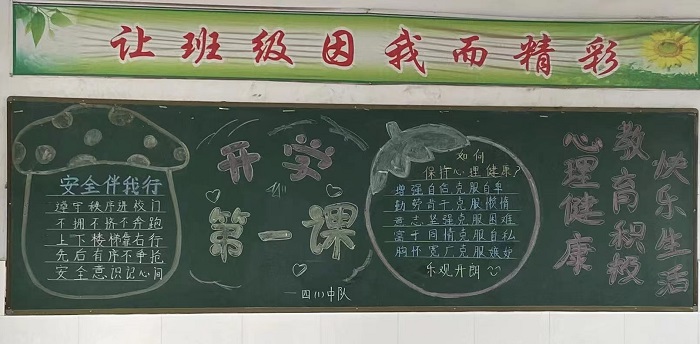 让班级因我而精彩
安全伴我行
遵守秩序进校门
不拥不挤不奔跑
上下楼梯靠右行
先后有序不争抢
安全意识记心间
开学
第一课
四(1)中队
如何
保持心理健康?
增强自信克服自卑
勤劳肯干克服懒惰
意志坚强克服困难
富于同情克服自私
胸怀宽广克服嫉妒
乐观开朗
心理健康
教育积极
快乐生活